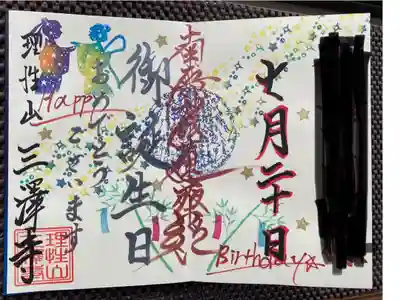 七月二十日
南無妙法蓮華経
御誕生日
おめでとう
ございます
Happy
Birthday
理性山
三澤寺